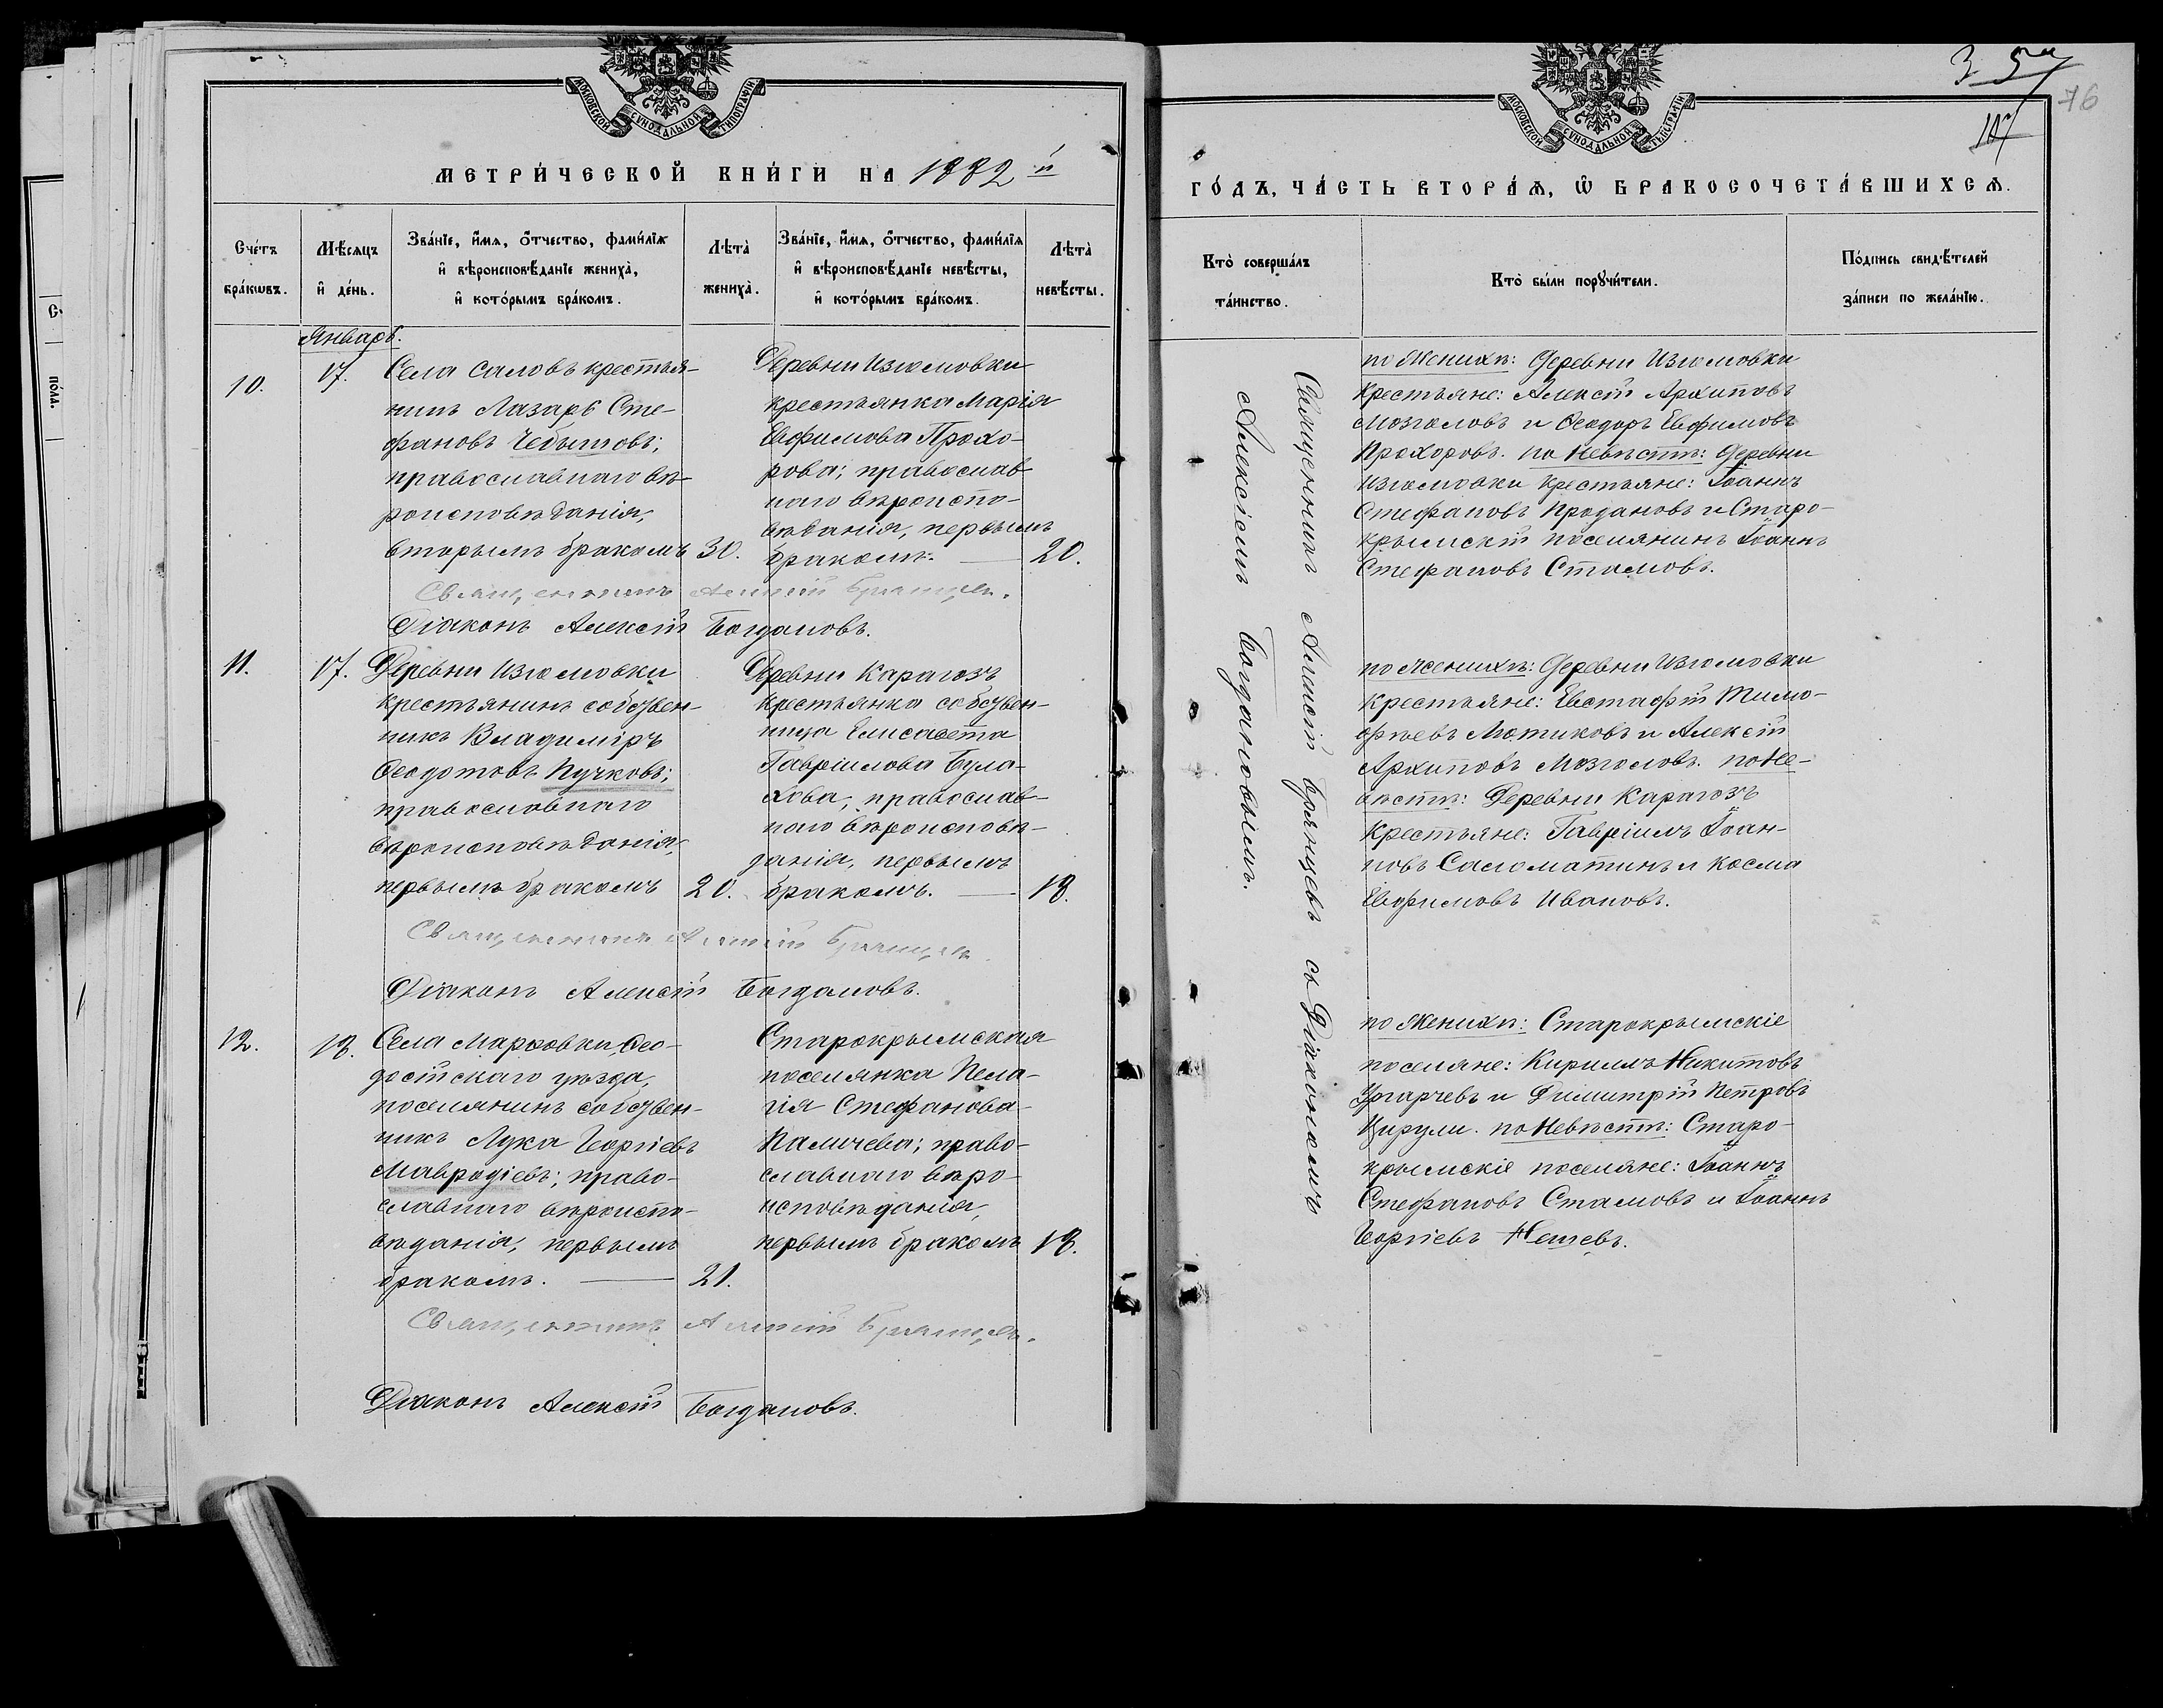 МОСКОВСКОЙ СѴНОДАЛЬНОЙ ТИПОГРАФІИ
МЕТРИ́ЧЕСКОЙ КНИ́ГИ НА 1882 й
Сче́тъ бра́кѡвъ.
Мѣ́сяцъ и҆ де́нь.
Зва́нїе, и҆́мѧ, ѻ҆́тчество, фами́лїѧ и҆ вѣроисповѣ́данїе жениха̀, и҆ кото́рымъ бра́комъ.
Лѣта̀ жениха̀.
Зва́нїе, и҆́мѧ, ѻ҆́тчество, фами́лїѧ и҆ вѣроисповѣ́данїе невѣ́сты, и҆ кото́рымъ бра́комъ.
Лѣта̀ невѣ́сты.
Январь.
10.
17.
Села Саловъ крестья-
нинъ Лазарь Сте-
фановъ Чебышовъ;
православнаго вѣ-
роисповѣданія,
вторымъ бракомъ 30.
Деревни Изюмовки
крестьянка Марія
Евфимова Прохо-
рова; православ
наго вѣроиспо-
вѣданія, первымъ
бракомъ. 20.
Священникъ Алексій Брянцевъ.
Діаконъ Алексій Богдановъ.
11.
17.
Деревни Изюмовки
крестьянинъ собствен-
никъ Владиміръ
Ѳеодотовъ Пучковъ;
православнаго
вѣроисповѣданія,
первымъ бракомъ 20.
Деревни Карагозъ
крестьянка собствен-
ница Елисавета
Гавріилова Була-
хова, православ-
наго вѣроисповѣ-
данія, первымъ
бракомъ. 18.
Священникъ Алексій Брянцевъ.
Діаконъ Алексій Богдановъ.
12.
18.
Села Марфовки, Ѳео-
досійскаго уѣзда,
поселянинъ собствен-
никъ Лука Георгіевъ
Мавродіевъ; право-
славнаго вѣроиспо-
вѣданія, первымъ
бракомъ. 21.
Старокрымская
поселянка Пела-
гія Стефанова
Паличева; право-
славнаго вѣро-
исповѣданія,
первымъ бракомъ 18.
Священникъ Алексій Брянцевъ.
Діаконъ Алексій Богдановъ.
76
107
МОСКОВСКОЙ СѴНОДАЛЬНОЙ ТИПОГРАФІИ
ГО́ДЪ, ЧА́СТЬ ВТОРА́Ѧ, Ѡ҆ БРАКОСОЧЕТА́ВШИХСѦ.
Кто̀ соверша́лъ та́инство.
Кто̀ бы́ли порꙋчи́тели.
По́дпись свидѣ́телей за́писи по жела́нїю.
Священникъ Алексій Брянцевъ съ Діакономъ
Алексіемъ Богдановымъ.
по Женихѣ: Деревни Изюмовки
крестьяне: Алексій Архиповъ
Мозголовъ и Ѳеодоръ Евфимовъ
Прохоровъ. по Невѣстѣ: Деревни
Изюмовки крестьяне: Іоаннъ
Стефановъ Продановъ и Старо-
крымскій поселянинъ Іоаннъ
Стефановъ Стамовъ.
по Женихѣ: Деревни Изюмовки
крестьяне: Евстафій Тимо-
фѣевъ Мотиковъ и Алексій
Архиповъ Мозголовъ. по Не-
вѣстѣ: Деревни Карагозъ
крестьяне: Гавріилъ Іоан-
новъ Саломатинъ и Косма
Евфимовъ Ивановъ.
по Женихѣ: Старокрымскіе
поселяне: Кириллъ Никитовъ
Узгарчевъ и Димитрій Петровъ
Цирули. по Невѣстѣ: Старо-
крымскіе поселяне: Іоаннъ
Стефановъ Стамовъ и Іоаннъ
Георгіевъ Нешевъ.